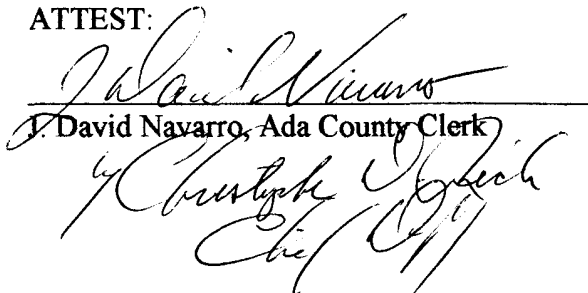 ATTEST:
J David Navarro
J. David Navarro, Ada County Clerk
by Christopher D. Rich
Chief Dpty